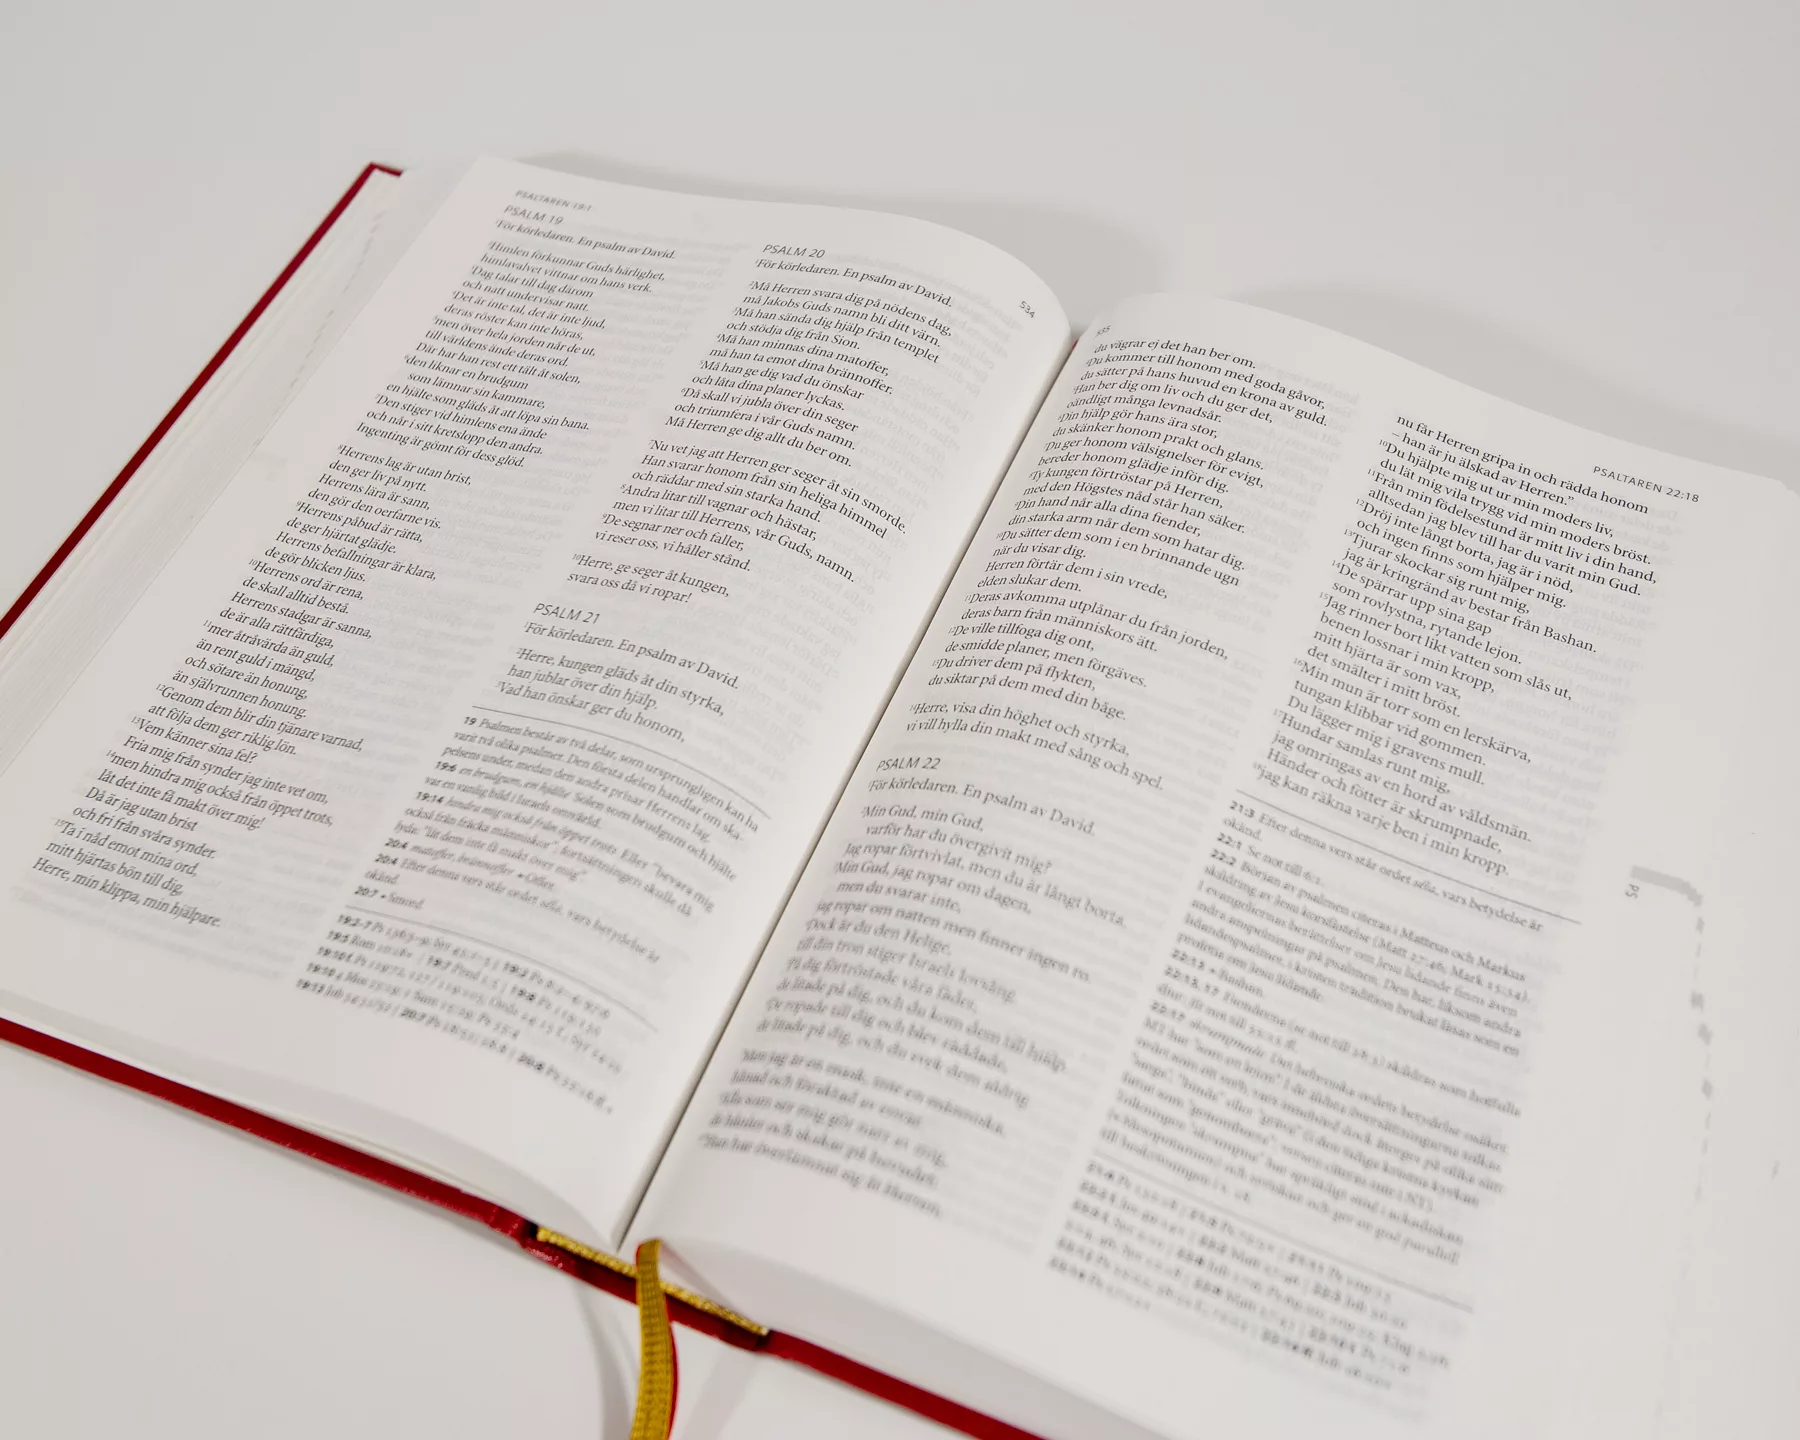 PSALTAREN 19:1
PSALM 19
¹För körledaren. En psalm av David.
²Himlen förkunnar Guds härlighet,
himlavalvet vittnar om hans verk.
³Dag talar till dag därom
och natt undervisar natt.
⁴Det är inte tal, det är inte ljud,
deras röster kan inte höras,
⁵men över hela jorden når de ut,
till världens ände deras ord.
Där har han rest ett tält åt solen,
⁶den liknar en brudgum
som lämnar sin kammare,
en hjälte som gläds åt att löpa sin bana.
⁷Den stiger vid himlens ena ände
och når i sitt kretslopp den andra.
Ingenting är gömt för dess glöd.
⁸Herrens lag är utan brist,
den ger liv på nytt.
Herrens lära är sann,
den gör den oerfarne vis.
⁹Herrens påbud är rätta,
de ger hjärtat glädje.
Herrens befallningar är klara,
de gör blicken ljus.
¹⁰Herrens ord är rena,
de skall alltid bestå.
Herrens stadgar är sanna,
de är alla rättfärdiga,
¹¹mer åtråvärda än guld,
än rent guld i mängd,
och sötare än honung,
än självrunnen honung.
¹²Genom dem blir din tjänare varnad,
att följa dem ger riklig lön.
¹³Vem känner sina fel?
Fria mig från synder jag inte vet om,
¹⁴men hindra mig också från öppet trots,
låt det inte få makt över mig!
Då är jag utan brist
och fri från svåra synder.
¹⁵Ta i nåd emot mina ord,
mitt hjärtas bön till dig,
Herre, min klippa, min hjälpare.
PSALM 20
¹För körledaren. En psalm av David.
²Må Herren svara dig på nödens dag,
må Jakobs Guds namn bli ditt värn.
³Må han sända dig hjälp från templet
och stödja dig från Sion.
⁴Må han minnas dina matoffer,
må han ta emot dina brännoffer.
⁵Må han ge dig vad du önskar
och låta dina planer lyckas.
⁶Då skall vi jubla över din seger
och triumfera i vår Guds namn.
Må Herren ge dig allt du ber om.
⁷Nu vet jag att Herren ger seger åt sin smorde.
Han svarar honom från sin heliga himmel
och räddar med sin starka hand.
⁸Andra litar till vagnar och hästar,
men vi litar till Herrens, vår Guds, namn.
⁹De segnar ner och faller,
vi reser oss, vi håller stånd.
¹⁰Herre, ge seger åt kungen,
svara oss då vi ropar!
PSALM 21
¹För körledaren. En psalm av David.
²Herre, kungen gläds åt din styrka,
han jublar över din hjälp.
³Vad han önskar ger du honom,
19 Psalmen består av två delar, som ursprungligen kan ha
varit två olika psalmer. Den första delen handlar om ska-
pelsens under, medan den andra prisar Herrens lag.
19:6 en brudgum, en hjälte Solen som brudgum och hjälte
var en vanlig bild i Israels omvärld.
19:14 hindra mig också från öppet trots Eller "bevara mig
också från fräcka människor"; fortsättningen skulle då
lyda: "låt dem inte få makt över mig".
20:4 matoffer, brännoffer • Offer.
20:4 Efter denna vers står ordet séla, vars betydelse är
okänd.
20:7 • Smord.
534
535
du vägrar ej det han ber om.
⁴Du kommer till honom med goda gåvor,
du sätter på hans huvud en krona av guld.
⁵Han ber dig om liv och du ger det,
oändligt många levnadsår.
⁶Din hjälp gör hans ära stor,
du skänker honom prakt och glans.
⁷Du ger honom välsignelser för evigt,
bereder honom glädje inför dig.
⁸Ty kungen förtröstar på Herren,
med den Högstes nåd står han säker.
⁹Din hand når alla dina fiender,
din starka arm når dem som hatar dig.
¹⁰Du sätter dem som i en brinnande ugn
när du visar dig.
Herren förtär dem i sin vrede,
elden slukar dem.
¹¹Deras avkomma utplånar du från jorden,
deras barn från människors ätt.
¹²De ville tillfoga dig ont,
de smidde planer, men förgäves.
¹³Du driver dem på flykten,
du siktar på dem med din båge.
¹⁴Herre, visa din höghet och styrka,
vi vill hylla din makt med sång och spel.
PSALM 22
¹För körledaren. En psalm av David.
²Min Gud, min Gud,
varför har du övergivit mig?
Jag ropar förtvivlat, men du är långt borta.
³Min Gud, jag ropar om dagen,
men du svarar inte,
jag ropar om natten men finner ingen ro.
⁴Dock är du den Helige,
till din tron stiger Israels lovsång.
⁵På dig förtröstade våra fäder,
de litade på dig, och du kom dem till hjälp.
⁶De ropade till dig och blev räddade,
de litade på dig, och du svek dem aldrig
⁷Men jag är en mask, inte en människa,
hånad och föraktad av envar.
⁸Alla som ser mig gör narr av mig,
de hånler och skakar på huvudet:
⁹"Han har överlämnat sig åt Herren,
PSALTAREN 22:18
nu får Herren gripa in och rädda honom
– han är ju älskad av Herren."
¹⁰Du hjälpte mig ut ur min moders liv,
du lät mig vila trygg vid min moders bröst.
¹¹Från min födelsestund är mitt liv i din hand,
alltsedan jag blev till har du varit min Gud.
¹²Dröj inte långt borta, jag är i nöd,
och ingen finns som hjälper mig.
¹³Tjurar skockar sig runt mig,
jag är kringränd av bestar från Bashan.
¹⁴De spärrar upp sina gap
som rovlystna, rytande lejon.
¹⁵Jag rinner bort likt vatten som slås ut,
benen lossnar i min kropp,
mitt hjärta är som vax,
det smälter i mitt bröst.
¹⁶Min mun är torr som en lerskärva,
tungan klibbar vid gommen.
Du lägger mig i gravens mull.
¹⁷Hundar samlas runt mig,
jag omringas av en hord av våldsmän.
Händer och fötter är skrumpnade,
¹⁸jag kan räkna varje ben i min kropp.
21:3 Efter denna vers står ordet séla, vars betydelse är
okänd.
22:1 Se not till 6:1.
22:2 Början av psalmen citeras i Matteus och Markus
skildring av Jesu korsfästelse (Matt 27:46; Mark 15:34).
I evangeliernas berättelser om Jesu lidande finns även
andra anspelningar på psalmen. Den har, liksom andra
lidandespsalmer, i kristen tradition brukat läsas som en
profetia om Jesu lidande.
22:13 • Bashan.
Ps